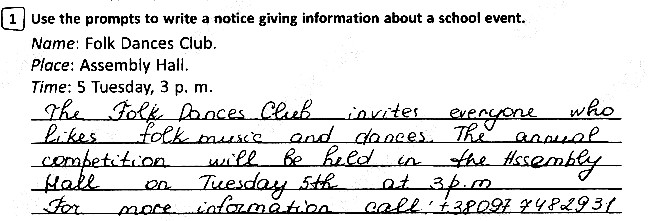 1 Use the prompts to write a notice giving information about a school event.
Name: Folk Dances Club.
Place: Assembly Hall.
Time: 5 Tuesday, 3 p. m.
The Folk Dances Club invites everyone who
likes folk music and dances. The annual
competition will be held in the Assembly
Hall on Tuesday 5th at 3p.m
For more information call: +380977482931